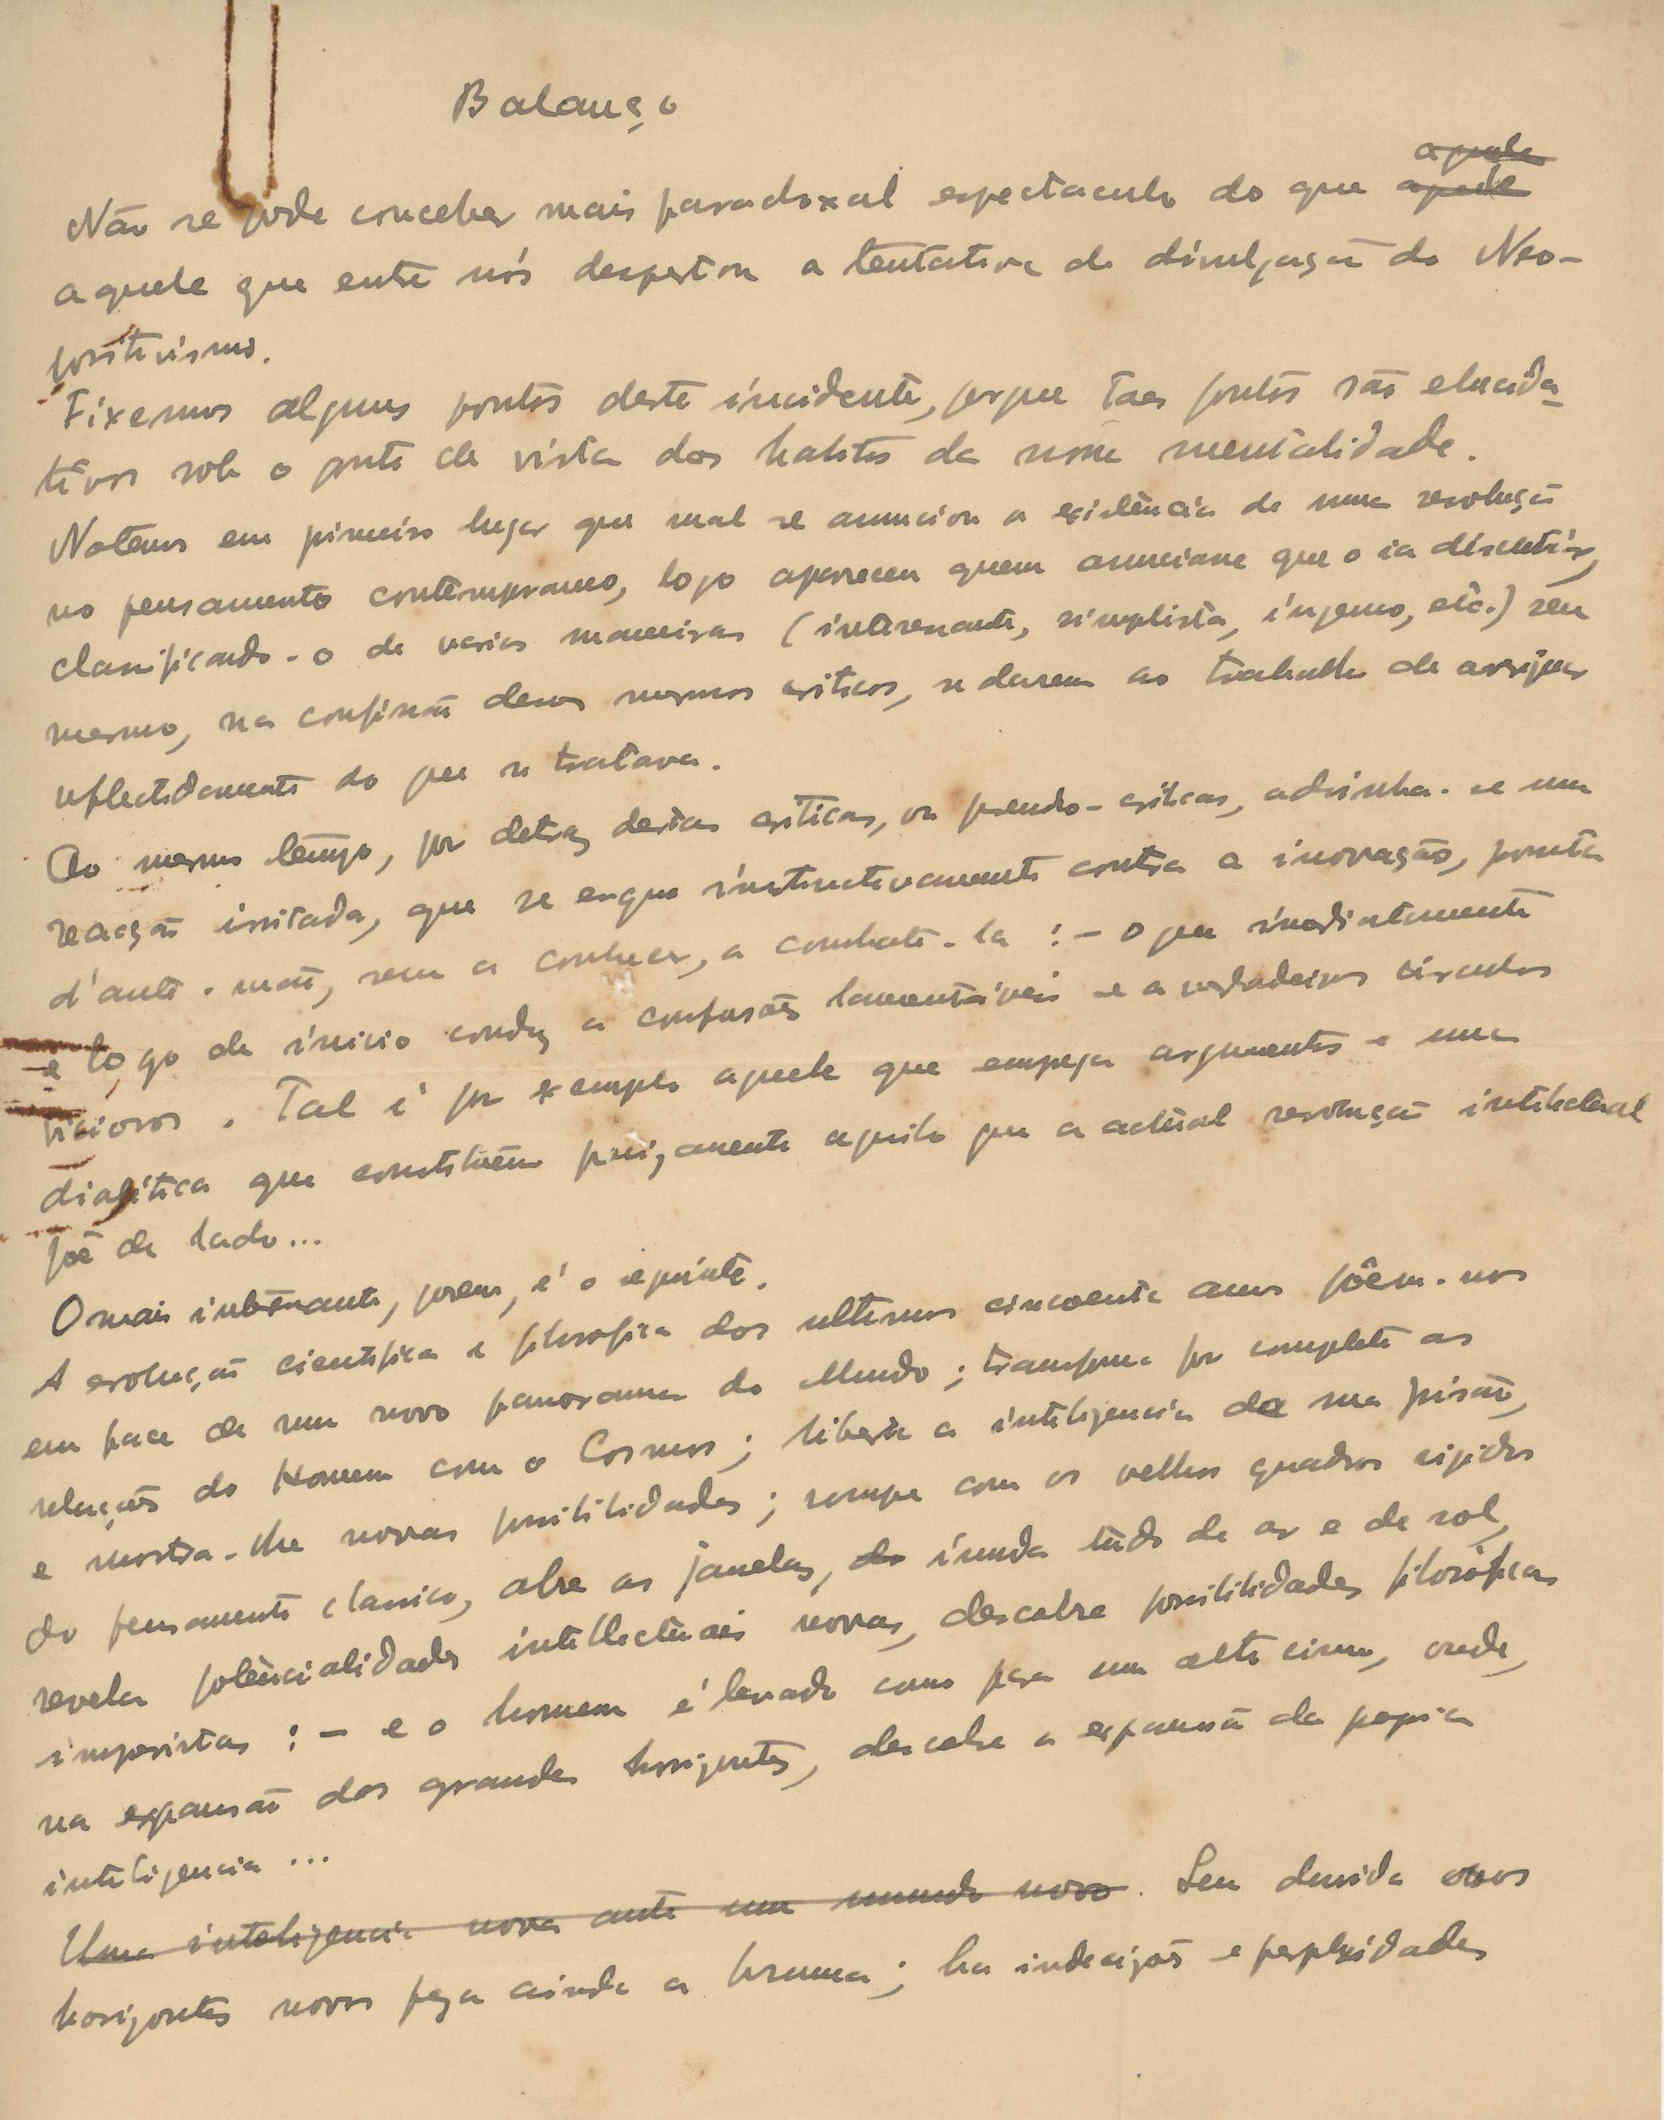 Balanço
aquele
Não se pode conceber mais paradoxal espectaculo do que aquele
aquele que entre nós despertou a tentativa de divulgação do Neo-
positivismo.
Fixemos alguns pontos deste incidente, porque taes pontos são elucida-
tivos sob o ponto de vista dos habitos da nossa mentalidade.
Notemos em primeiro lugar que mal se anunciou a existência de uma revolução
no pensamento contemporaneo, logo apareceu quem anunciasse que o ia discutir,
classificando-o de varias maneiras (interessante, simplista, ingenuo, etc.) sem
mesmo, na confissão desses mesmos criticos, se darem ao trabalho de averiguar
reflectidamente do que se tratava.
Ao mesmo tempo, por detraz destas criticas, ou pseudo-criticas, adivinha-se uma
reacção irritada, que se ergue instinctivamente contra a inovação, pronta
d'ante-mão, sem a conhecer, a combate-la : - o que imediatamente
e logo de inicio conduz a confusões lamentáveis e a verdadeiros circulos
viciosos. Tal é por exemplo aquele que emprega argumentos e uma
dialética que constituem precizamente aquilo que a actual revolução intelectual
põe de lado...
O mais interessante, porem, é o seguinte.
A evolução cientifica e filosofica dos ultimos cincoenta anos põem-nos
em face de um novo panorama do Mundo; transforma por completo as
relações do Homem com o Cosmos; liberta a inteligencia da sua prisão,
e mostra-lhe novas possibilidades; rompe com os velhos quadros rigidos
do pensamento classico, abre as janelas, do inunda tudo de ar e de sol,
revela potencialidades intellectuais novas, descobre possibilidades filosóficas
imprevistas : - e o homem é levado como para um alto cimo, onde,
na expansão dos grandes horizontes, descobre a expansão da propria
inteligencia ...
Uma inteligencia nova ante um mundo novo. Sem duvida nos
horizontes novos paza ainda a bruma; ha indecizões e perplexidades